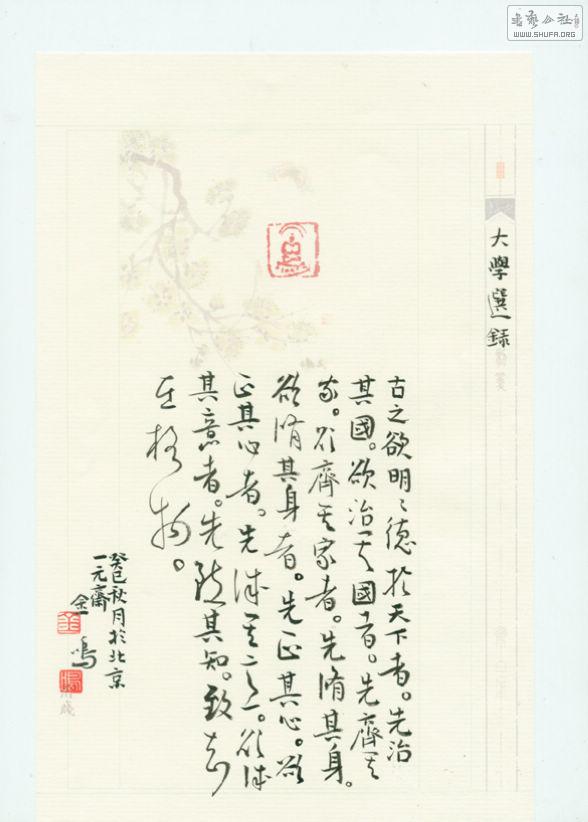 書藝公社
WWW.SHUFA.ORG
大學選錄
古之欲明〻德於天下者。先治
其國。欲治其國者。先齊其
家。欲齊其家者。先脩其身。
欲脩其身者。先正其心。欲
正其心者。先誠其意。欲誠
其意者。先致其知。致知
在格物。
癸巳秋月於北京
一元齋
金鳴